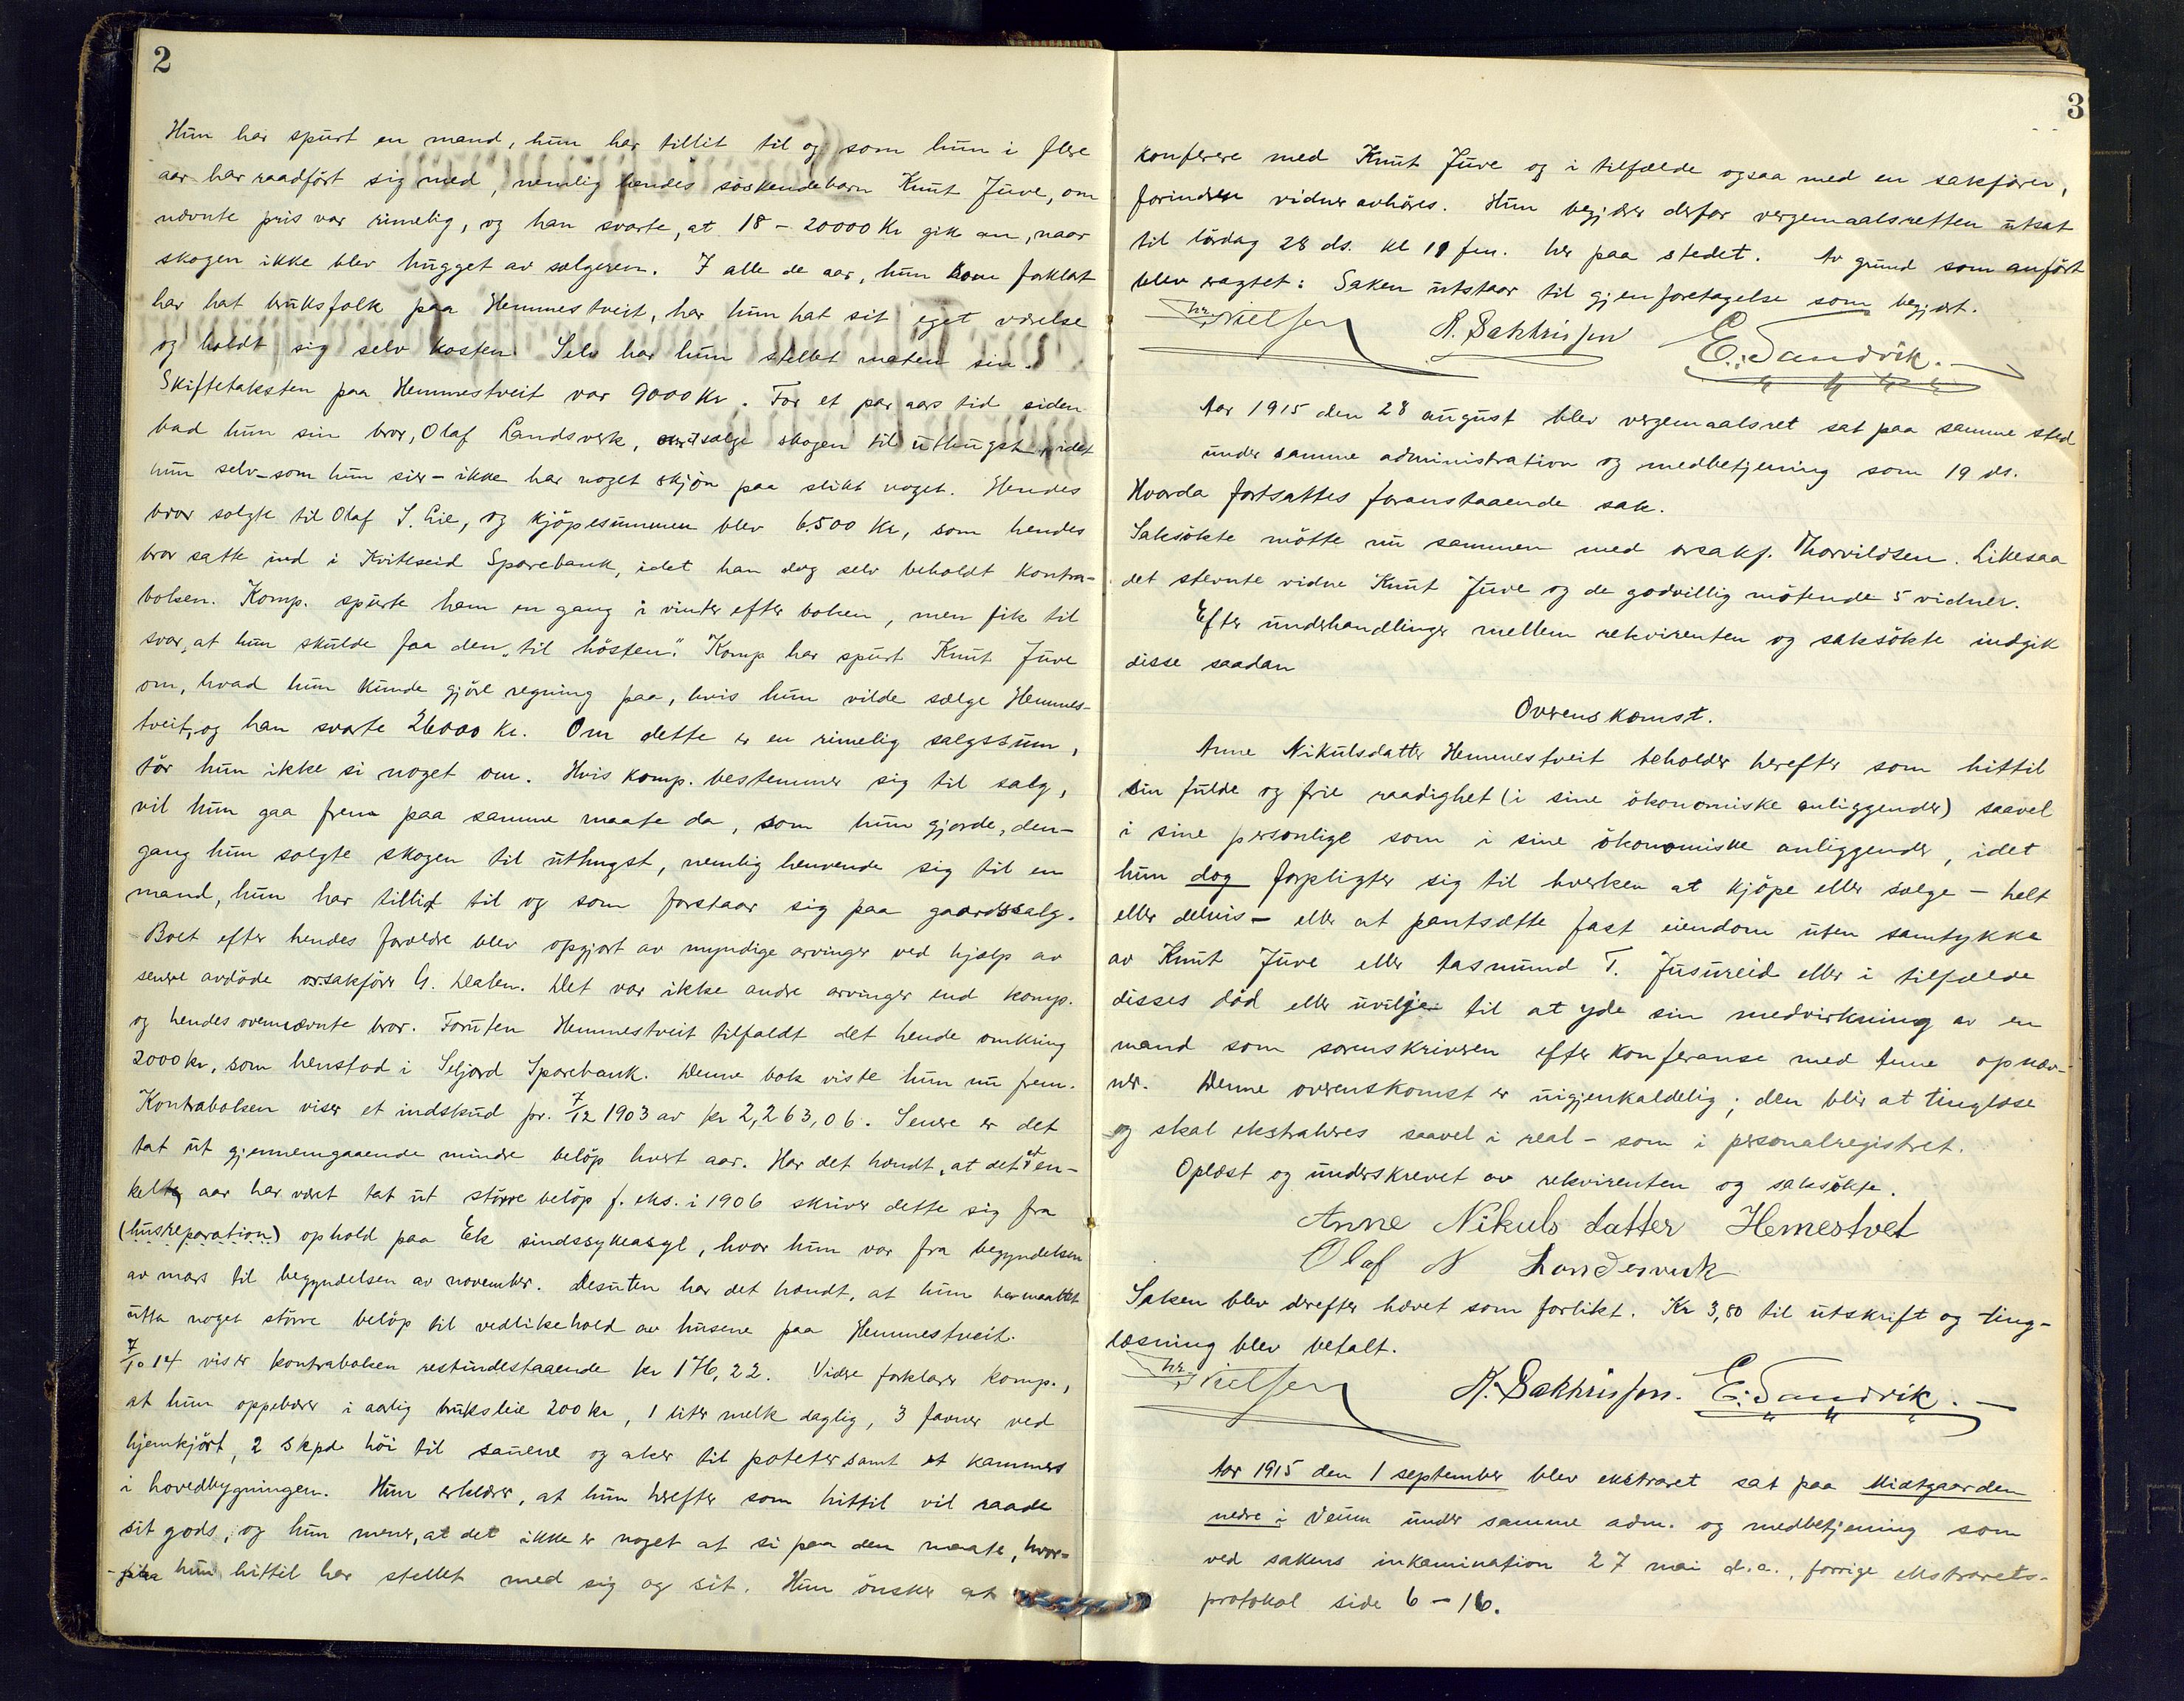 2
Hun har spurt en mand, hun har tillit til og som hun i flere
aar har raadført sig med, nemlig hendes søskendebarn Knut Juve, om
nævnte pris var rimelig, og han svarte, at 18 - 20000 Kr gik an, naar
skogen ikke blev hugget av sælgeren. I alle de aar, hun som forklat
har hat bruksfolk paa Hemmestveit, har hun hat sit eget værelse
og holdt sig selv kosten. Selv har hun stellet maten sin.
Skiftetaksten paa Hemmestveit var 9000 Kr. For et par aars tid siden
bad hun sin bror, Olaf Landsverk, sælge skogen til uthugst, idet
hun selv - som hun sier - ikke har noget skjøn paa slikt noget. Hendes
bror solgte til Olaf S. Lie, og kjøpesummen blev 6.500 Kr, som hendes
bror satte ind i Kviteseid Sparebank, idet han dog selv beholdt kontra-
boken. Komp. spurte ham en gang i vinter efter boken, men fik til
svar, at hun skulde faa den „til høsten". Komp har spurt Knut Juve
om, hvad hun kunde gjøre regning paa, hvis hun vilde sælge Hemmes-
tveit, og han svarte 26000 Kr. Om dette er en rimelig salgssum,
tør hun ikke si noget om. Hvis komp. bestemmer sig til salg,
vil hun gaa frem paa samme maate da, som hun gjorde, den-
gang hun solgte skogen til uthugst, nemlig henvende sig til en
mand, hun har tillid til og som forstaar sig paa gaardssalg.
Boet efter hendes forældre blev opgjort av myndige arvinger ved hjælp av
senere avdøde orsakfører G. Dalen. Det var ikke andre arvinger end komp.
og hendes ovennævnte bror. Foruten Hemmestveit tilfaldt det hende omkring
2000 kr, som henstod i Seljord Sparebank. Denne bok viste hun nu frem.
Kontraboken viser et indskud pr. 7/12 1903 av kr 2,263,06. Senere er det
tat ut gjennemgaaende mindre beløp hvert aar. Har det hændt, at det et en-
kelt aar har været tat ut større beløp f. eks. i 1906 skriver dette sig fra
(husreparation) ophold paa Ek sindssykeasyl, hvor hun var fra begyndelsen
av mars til begyndelsen av november. Desuten har det hændt, at hun har maattet
utta noget større beløp til vedlikehold av husene paa Hemmestveit.
7/10 14 viser kontraboken restindestaaende kr 176,22. Videre forklarer komp.,
at hun oppebærer i aarlig bruksleie 200 kr, 1 liter melk daglig, 3 favner ved
hjemkjørt, 2 skpd høi til sauene og aker til poteter samt et kammers
i hovedbygningen. Hun erklærer, at hun herefter som hittil vil raade
sit gods, og hun mener, at det ikke er noget at si paa den maate, hvor-
paa hun hittil har stellet med sig og sit. Hun ønsker at
3
konferere med Knut Juve og i tilfælde ogsaa med en sakfører,
forinden vidner avhøres. Hun begjærer derfor vergemaalsretten utsat
til lørdag 28 ds. kl 11 fm. her paa stedet. Av grund som anført
blev eragtet: Saken utstaar til gjenforetagelse som begjært.
Nielsen K. Sakkrisson E. Sandvik.
Aar 1915 den 28 august blev vergemaalsret sat paa samme sted
under samme administration og medbetjening som 19 ds.
Hvorda fortsattes foranstaaende sak.
Saksøkte møtte nu sammen med orsakf. Thorvildsen. Likesaa
det stevnte vidne Knut Juve og de godvillig møtende 5 vidner.
Efter underhandlinger mellem rekvirenten og saksøkte indgik
disse saadan
Overenskomst.
Anne Nikulsdatter Hemmestveit beholder herefter som hittil
sin fulde og frie raadighet (i sine økonomiske anliggender) saavel
i sine personlige som i sine økonomiske anliggender, idet
hun dog forpligter sig til hverken at kjøpe eller sælge - helt
eller delvis - eller at pantsætte fast eiendom uten samtykke
av Knut Juve eller Aasmund T. Jusureid eller i tilfælde
disses død eller uvilje til at yde sin medvirkning av en
mand som sorenskriveren efter konferanse med Anne opnæv-
ner. Denne overenskomst er uigjenkaldelig; den blir at tinglæse
og skal ekstraheres saavel i real- som i personalregistret.
Oplæst og underskrevet av rekvirenten og saksøkte.
Anne Nikuls datter Hemestvet
Olaf N Landsverk
Saken blev derefter hævet som forlikt. Kr 3,80 til utskrift og ting-
læsning blev betalt.
Nielsen K. Sakkrisson. E. Sandvik.
Aar 1915 den 1 september blev ekstraret sat paa Midtgaarden
nedre i Veum under samme adm. og medbetjening som
ved sakens inkamination 27 mai d.a., forrige ekstrarets-
protokol side 6 - 16.